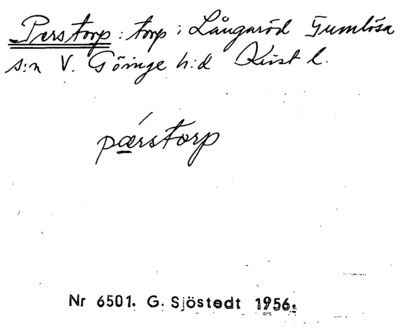 Perstorp : torp i Långaröd Gumlösa
s:n V. Göinge h:d Krist l.
pǽrstorp
Nr 6501. G. Sjöstedt 1956.